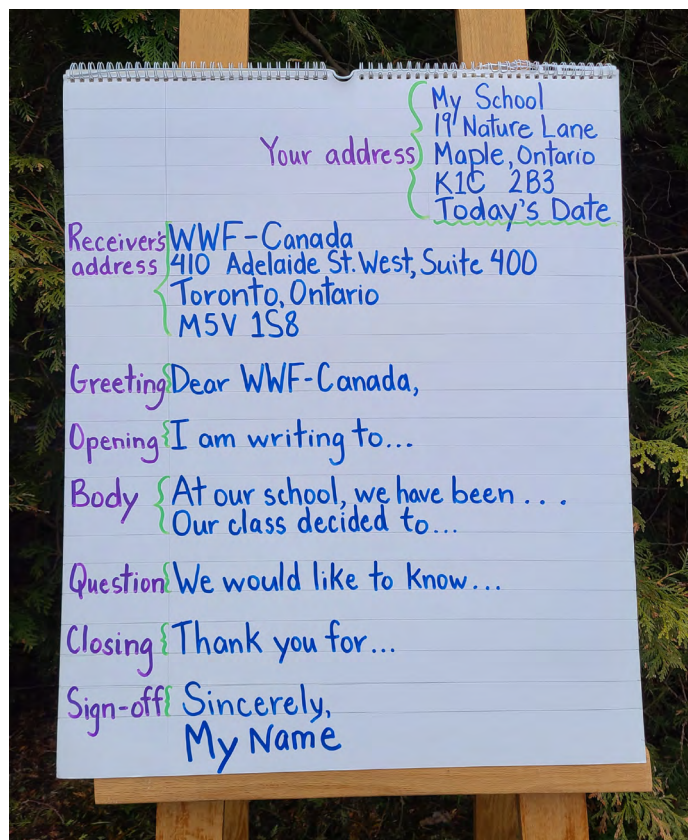 My School
19 Nature Lane
Your address Maple, Ontario
K1C 2B3
Today's Date
Receiver's WWF-Canada
address 410 Adelaide St. West, Suite 400
Toronto, Ontario
M5V 1S8
Greeting Dear WWF-Canada,
Opening I am writing to...
Body At our school, we have been . . .
Our class decided to...
Question We would like to know...
Closing Thank you for...
Sign-off Sincerely,
My Name